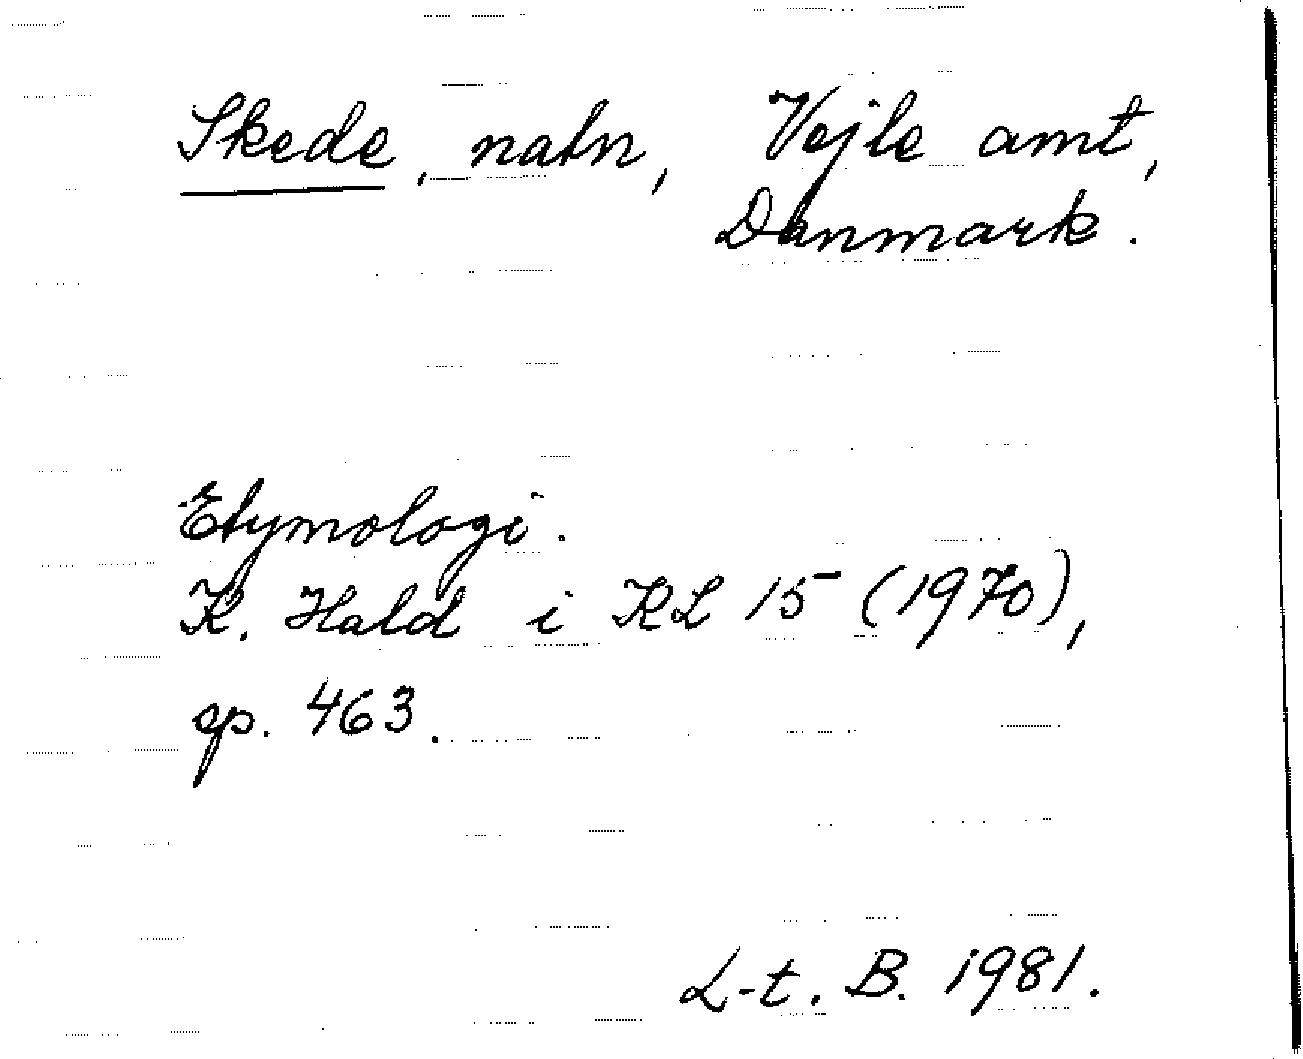 Skede, natn, Vejle amt,
Danmark.
Etymologi.
K. Hald i KL 15 (1970),
sp. 463.
L-t. B. 1981.